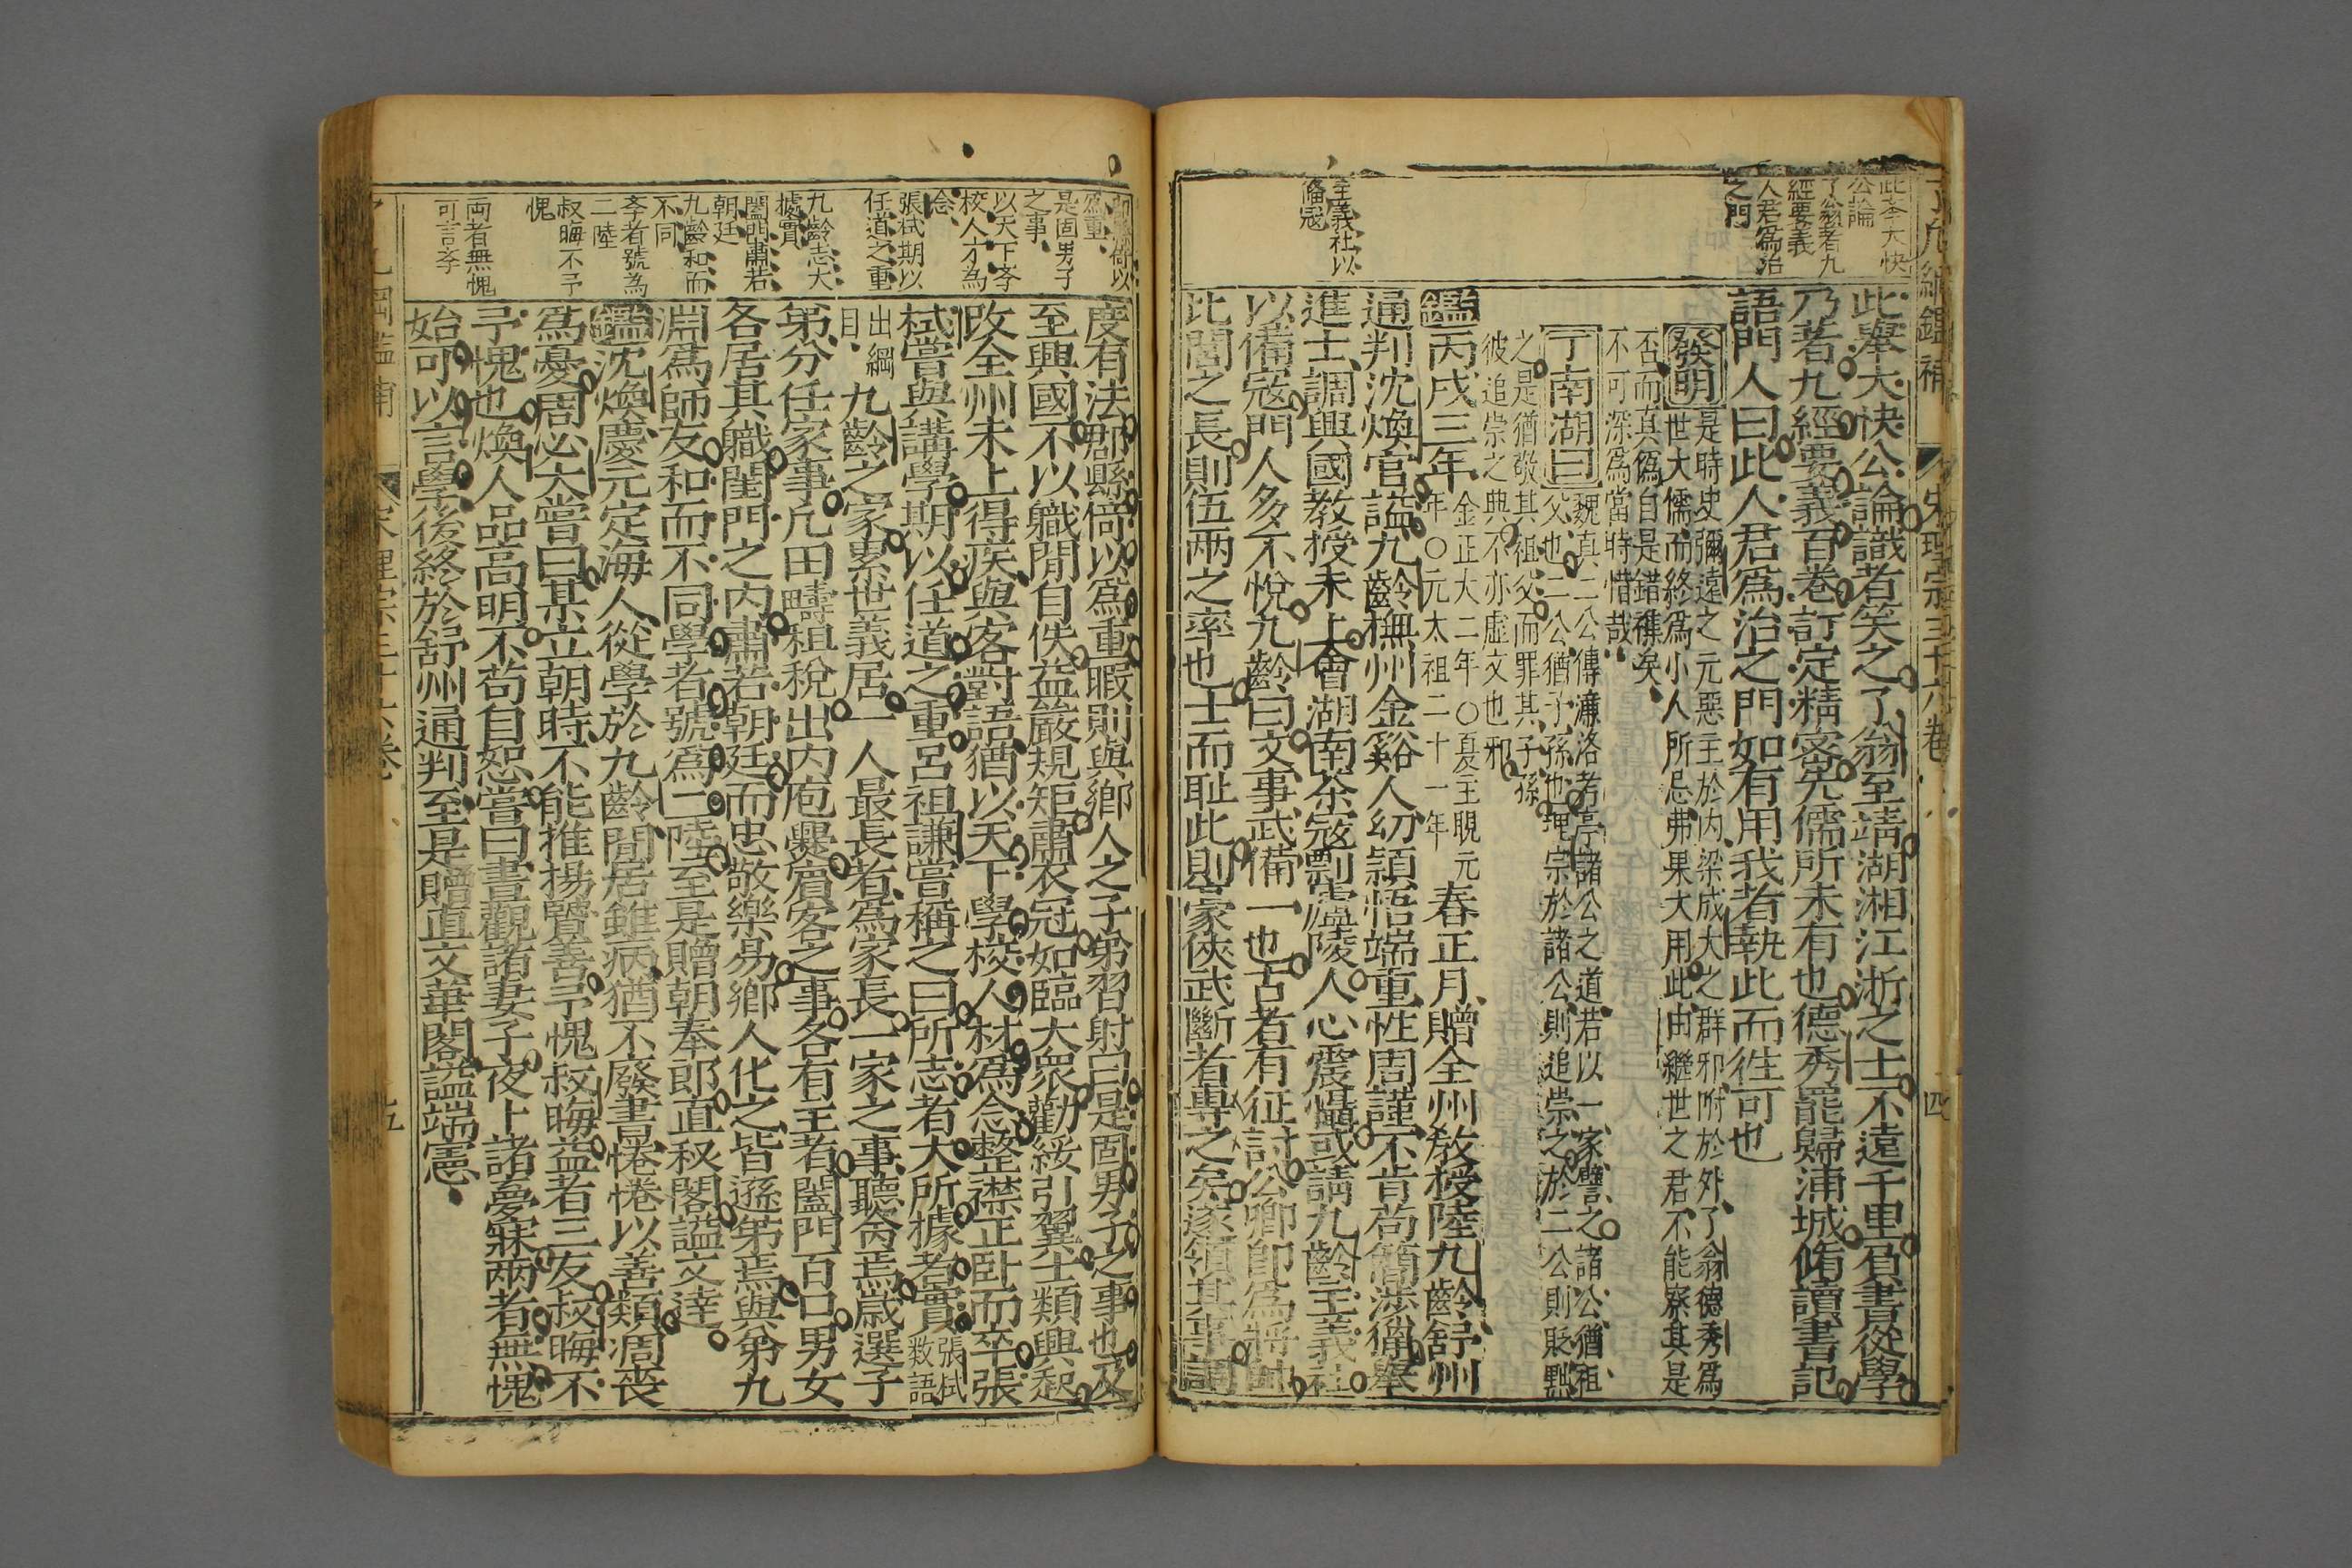 了凡綱鑑補
宋理宗三十六卷
四
此李大快
公論
了翁著九
經要義
人君為治
之門
主義社以
備寇
此舉大快公論識者笑之了翁至靖湖湘江浙之士不遠千里負書從學
乃著九經要義百卷訂定精密先儒所未有也德秀罷歸浦城脩讀書記
語門人曰此人君為治之門如有用我者執此而徃可也
發明
是時史彌遠之元惡主於内梁成大之群邪附於外了翁德秀爲
世大儒而終爲小人所忌弗果大用此由繼世之君不能察其是
否而真僞自是錯襍矣
不可深爲當時惜哉
丁南湖曰
魏真二公傳濂洛考亭諸公之道若以一家譬之諸公猶祖
父也二公猶子孫也理宗於諸公則追崇之於二公則貶黜
之是猶敬其祖父而罪其子孫
彼追崇之典不亦虛文也邪
鑑丙戌三年
金正大二年〇夏主睍元
年〇元太祖二十一年
春正月贈全州教授陸九齡舒州
通判沈煥官諡九齡撫州金谿人幼穎悟端重性周謹不肯苟簡涉獵舉
進士調興國教授未上會湖南茶寇剽盧陵人心震懾或請九齡主義社
以備寇門人多不悅九齡曰文事武備一也古者有征討公卿即為將帥
比閭之長則伍兩之率也士而恥此則豪俠武斷者專之矣遂領其事調
度有法郡縣倚以爲重暇則與鄉人之子弟習射曰是固男子之事也及
至興國不以職閒自佚益嚴規矩肅衣冠如臨大衆勸綏引翼士類興起
改全州未上得疾與客對語猶以天下學校人材爲念整襟正卧而卒張
栻嘗與講學期以任道之重呂祖謙嘗稱之曰所志者大所據者實
張栻
数語
出綱
目
九齡之家累世義居一人最長者爲家長一家之事聽命焉歲選子
第分任家事凢田疇租稅出内庖爨賓客之事各有主者闔門百口男女
各居其職閨門之内肅若朝廷而忠敬樂易鄉人化之皆遜弟焉與弟九
淵爲師友和而不同學者號爲二陸至是贈朝奉郎直秘閣諡文逹
鑑沈煥慶元定海人從學於九齡閒居雖病猶不廢書惓惓以善類凋喪
爲憂周必大嘗曰某立朝時不能推揚賢善予愧叔晦益者三友叔晦不
予愧也煥人品高明不苟自恕嘗曰晝觀諸妻子夜卜諸夢寐兩者無愧
始可以言學後終於舒州通判至是贈直文華閣諡端憲
為重
是固男子
之事
以天下李
校人才為
念
張栻期以
任道之重
九齡志大
據實
閨門肅若
朝廷
九齡和而
不同
李者號為
二陸
叔晦不予
愧
両者無愧
可言李
五